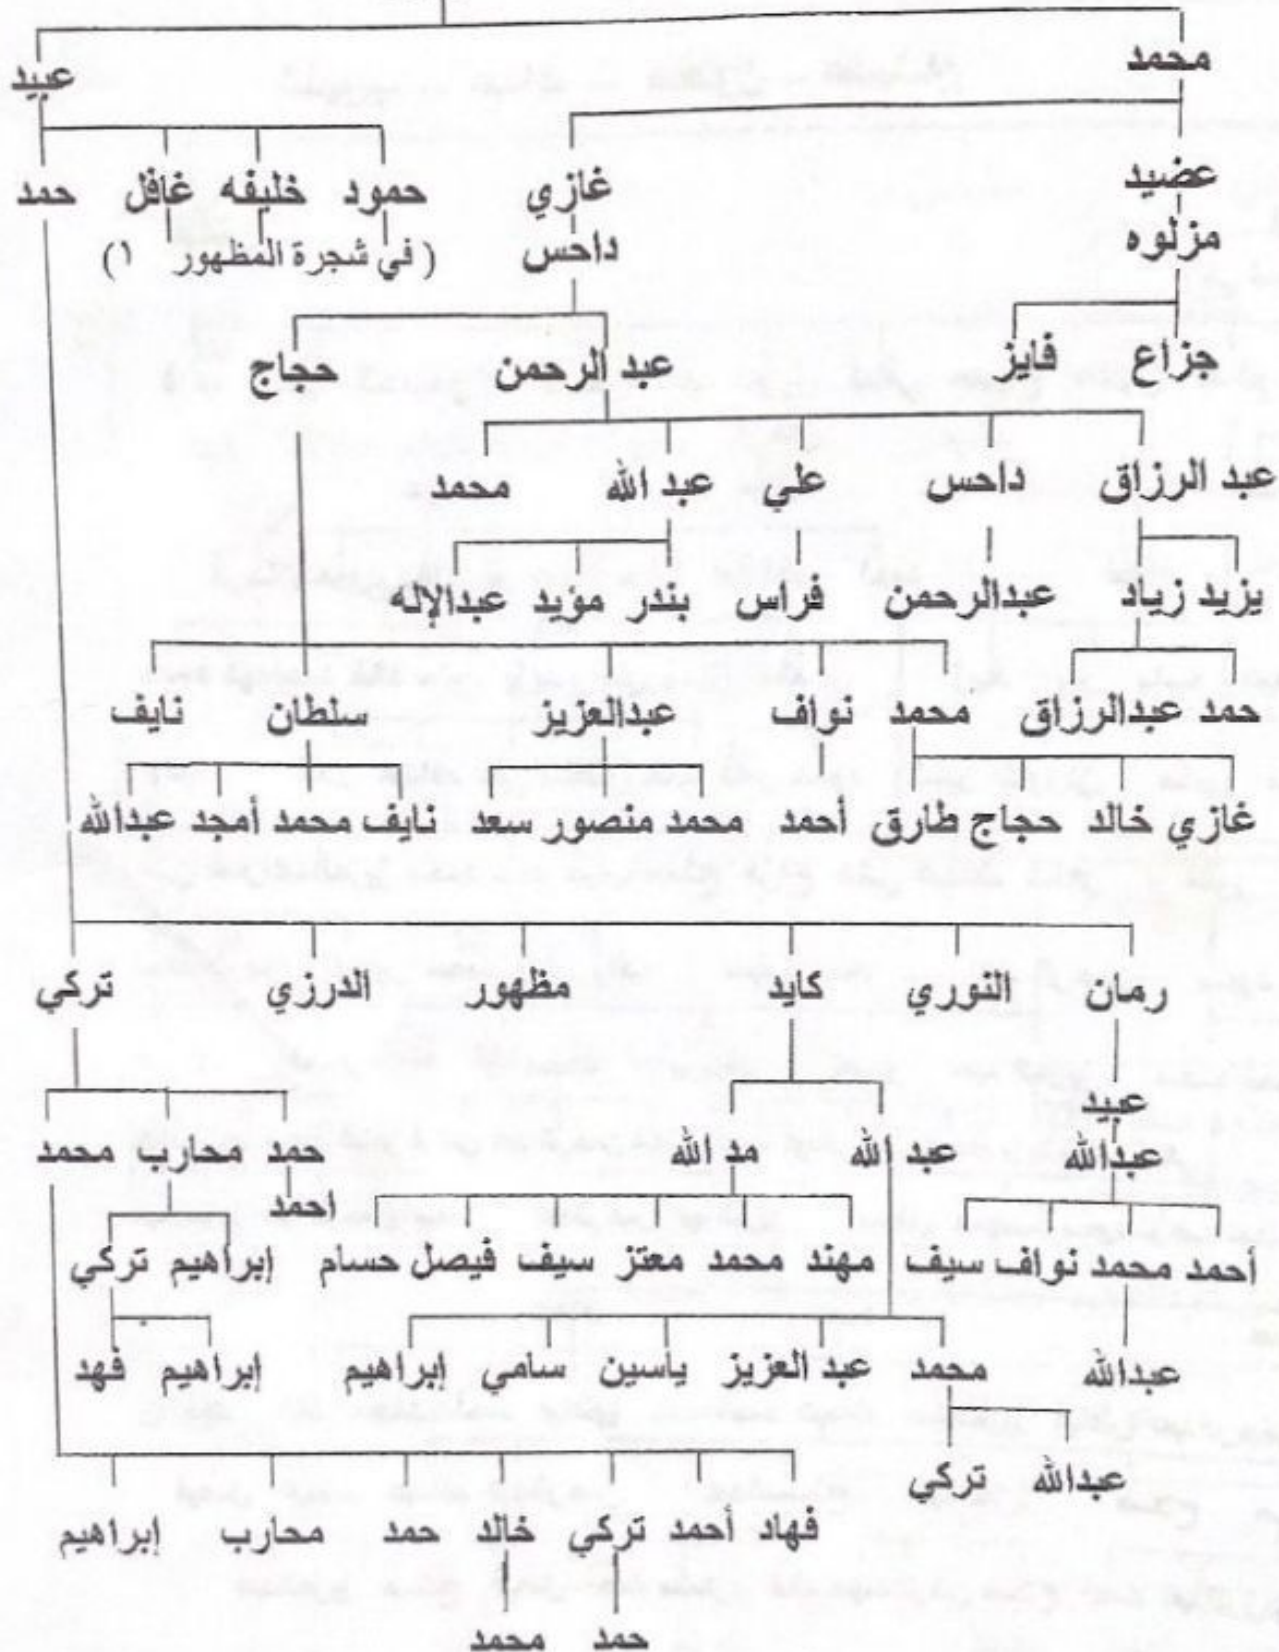 محمد عبيد
عضيد غازي حمود خليفه غافل حمد
مزلوه داحس ( في شجرة المظهور ١ )
جزاع فايز عبد الرحمن حجاج
عبد الرزاق داحس علي عبد الله محمد
يزيد زياد عبدالرحمن فراس بندر مؤيد عبدالإله
حمد عبدالرزاق محمد نواف عبدالعزيز سلطان نايف
غازي خالد حجاج طارق أحمد محمد منصور سعد نايف محمد أمجد عبدالله
رمان النوري كايد مظهور الدرزي تركي
عبيد
عبدالله عبد الله مد الله حمد محارب محمد
احمد
أحمد محمد نواف سيف مهند محمد معتز سيف فيصل حسام إبراهيم تركي
عبدالله محمد عبد العزيز ياسين سامي إبراهيم إبراهيم فهد
عبدالله تركي
فهاد أحمد تركي خالد حمد محارب إبراهيم
حمد محمد